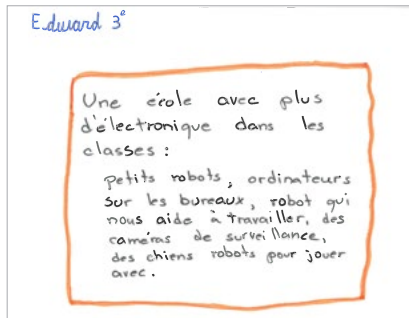 Edward 3e
Une école avec plus
d'électronique dans les
classes :
petits robots, ordinateurs
sur les bureaux, robot qui
nous aide à travailler, des
caméras de surveillance,
des chiens robots pour jouer
avec.